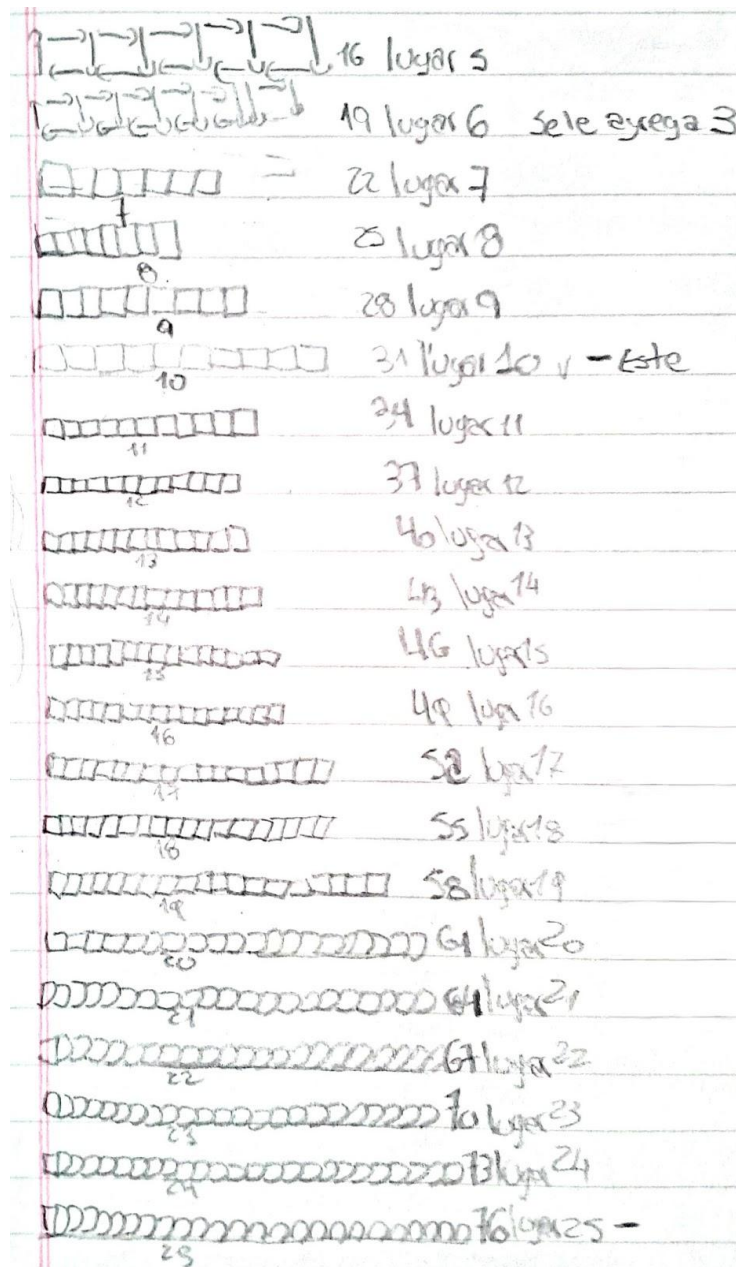 16 lugar 5
19 lugar 6 Se le agrega 3
22 lugar 7
7
25 lugar 8
8
28 lugar 9
9
31 lugar 10 v - Este
10
34 lugar 11
11
37 lugar 12
12
40 lugar 13
13
43 lugar 14
14
46 lugar 15
15
49 lugar 16
16
52 lugar 17
17
55 lugar 18
18
58 lugar 19
19
61 lugar 20
20
64 lugar 21
21
67 lugar 22
22
70 lugar 23
23
73 lugar 24
24
76 lugar 25 -
25